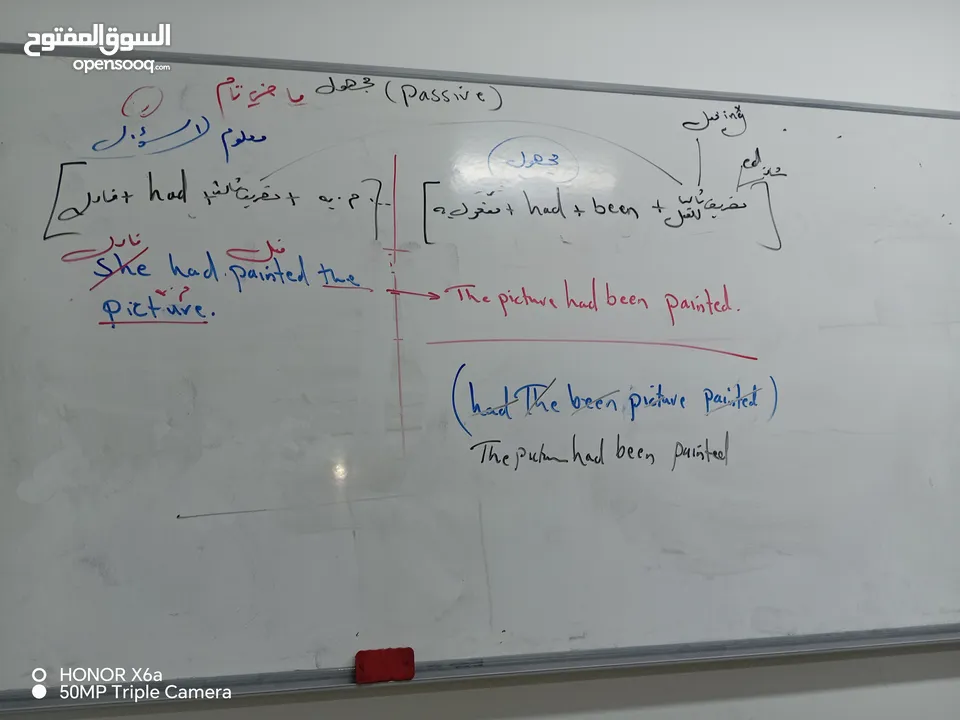 السوق المفتوح
opensooq.com
مجهول ماضي تام (Passive)
معلوم
مجهول
فاعل + had + تصريف ثالث + م. به
مفعول به + had + been + تصريف ثالث للفعل
ed
شاذ
فاعل
فعل
She had painted the
picture.
The picture had been painted.
(had The been picture painted)
had been painted
HONOR X6a
50MP Triple Camera